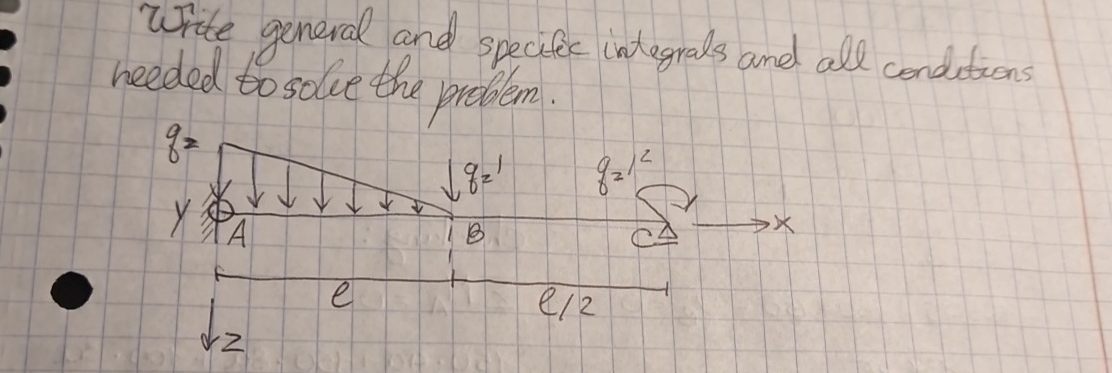 Write general and specific integrals and all conditions
needed to solve the problem.
qz
qz l
qz l²
y
A
B
C
x
l
l/2
z